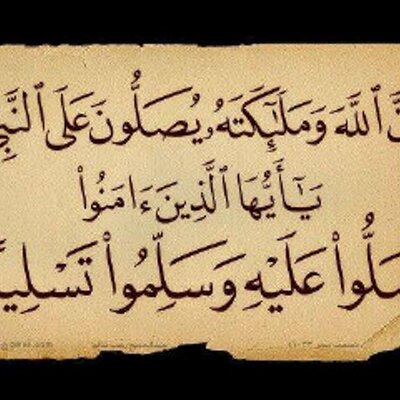 نَّ ٱللَّهَ وَمَلَـٰٓئِكَتَهُۥ يُصَلُّونَ عَلَى ٱلنَّبِيِّ
يَـٰٓأَيُّهَا ٱلَّذِينَ ءَامَنُوا۟
صَلُّوا۟ عَلَيْهِ وَسَلِّمُوا۟ تَسْلِيمًا